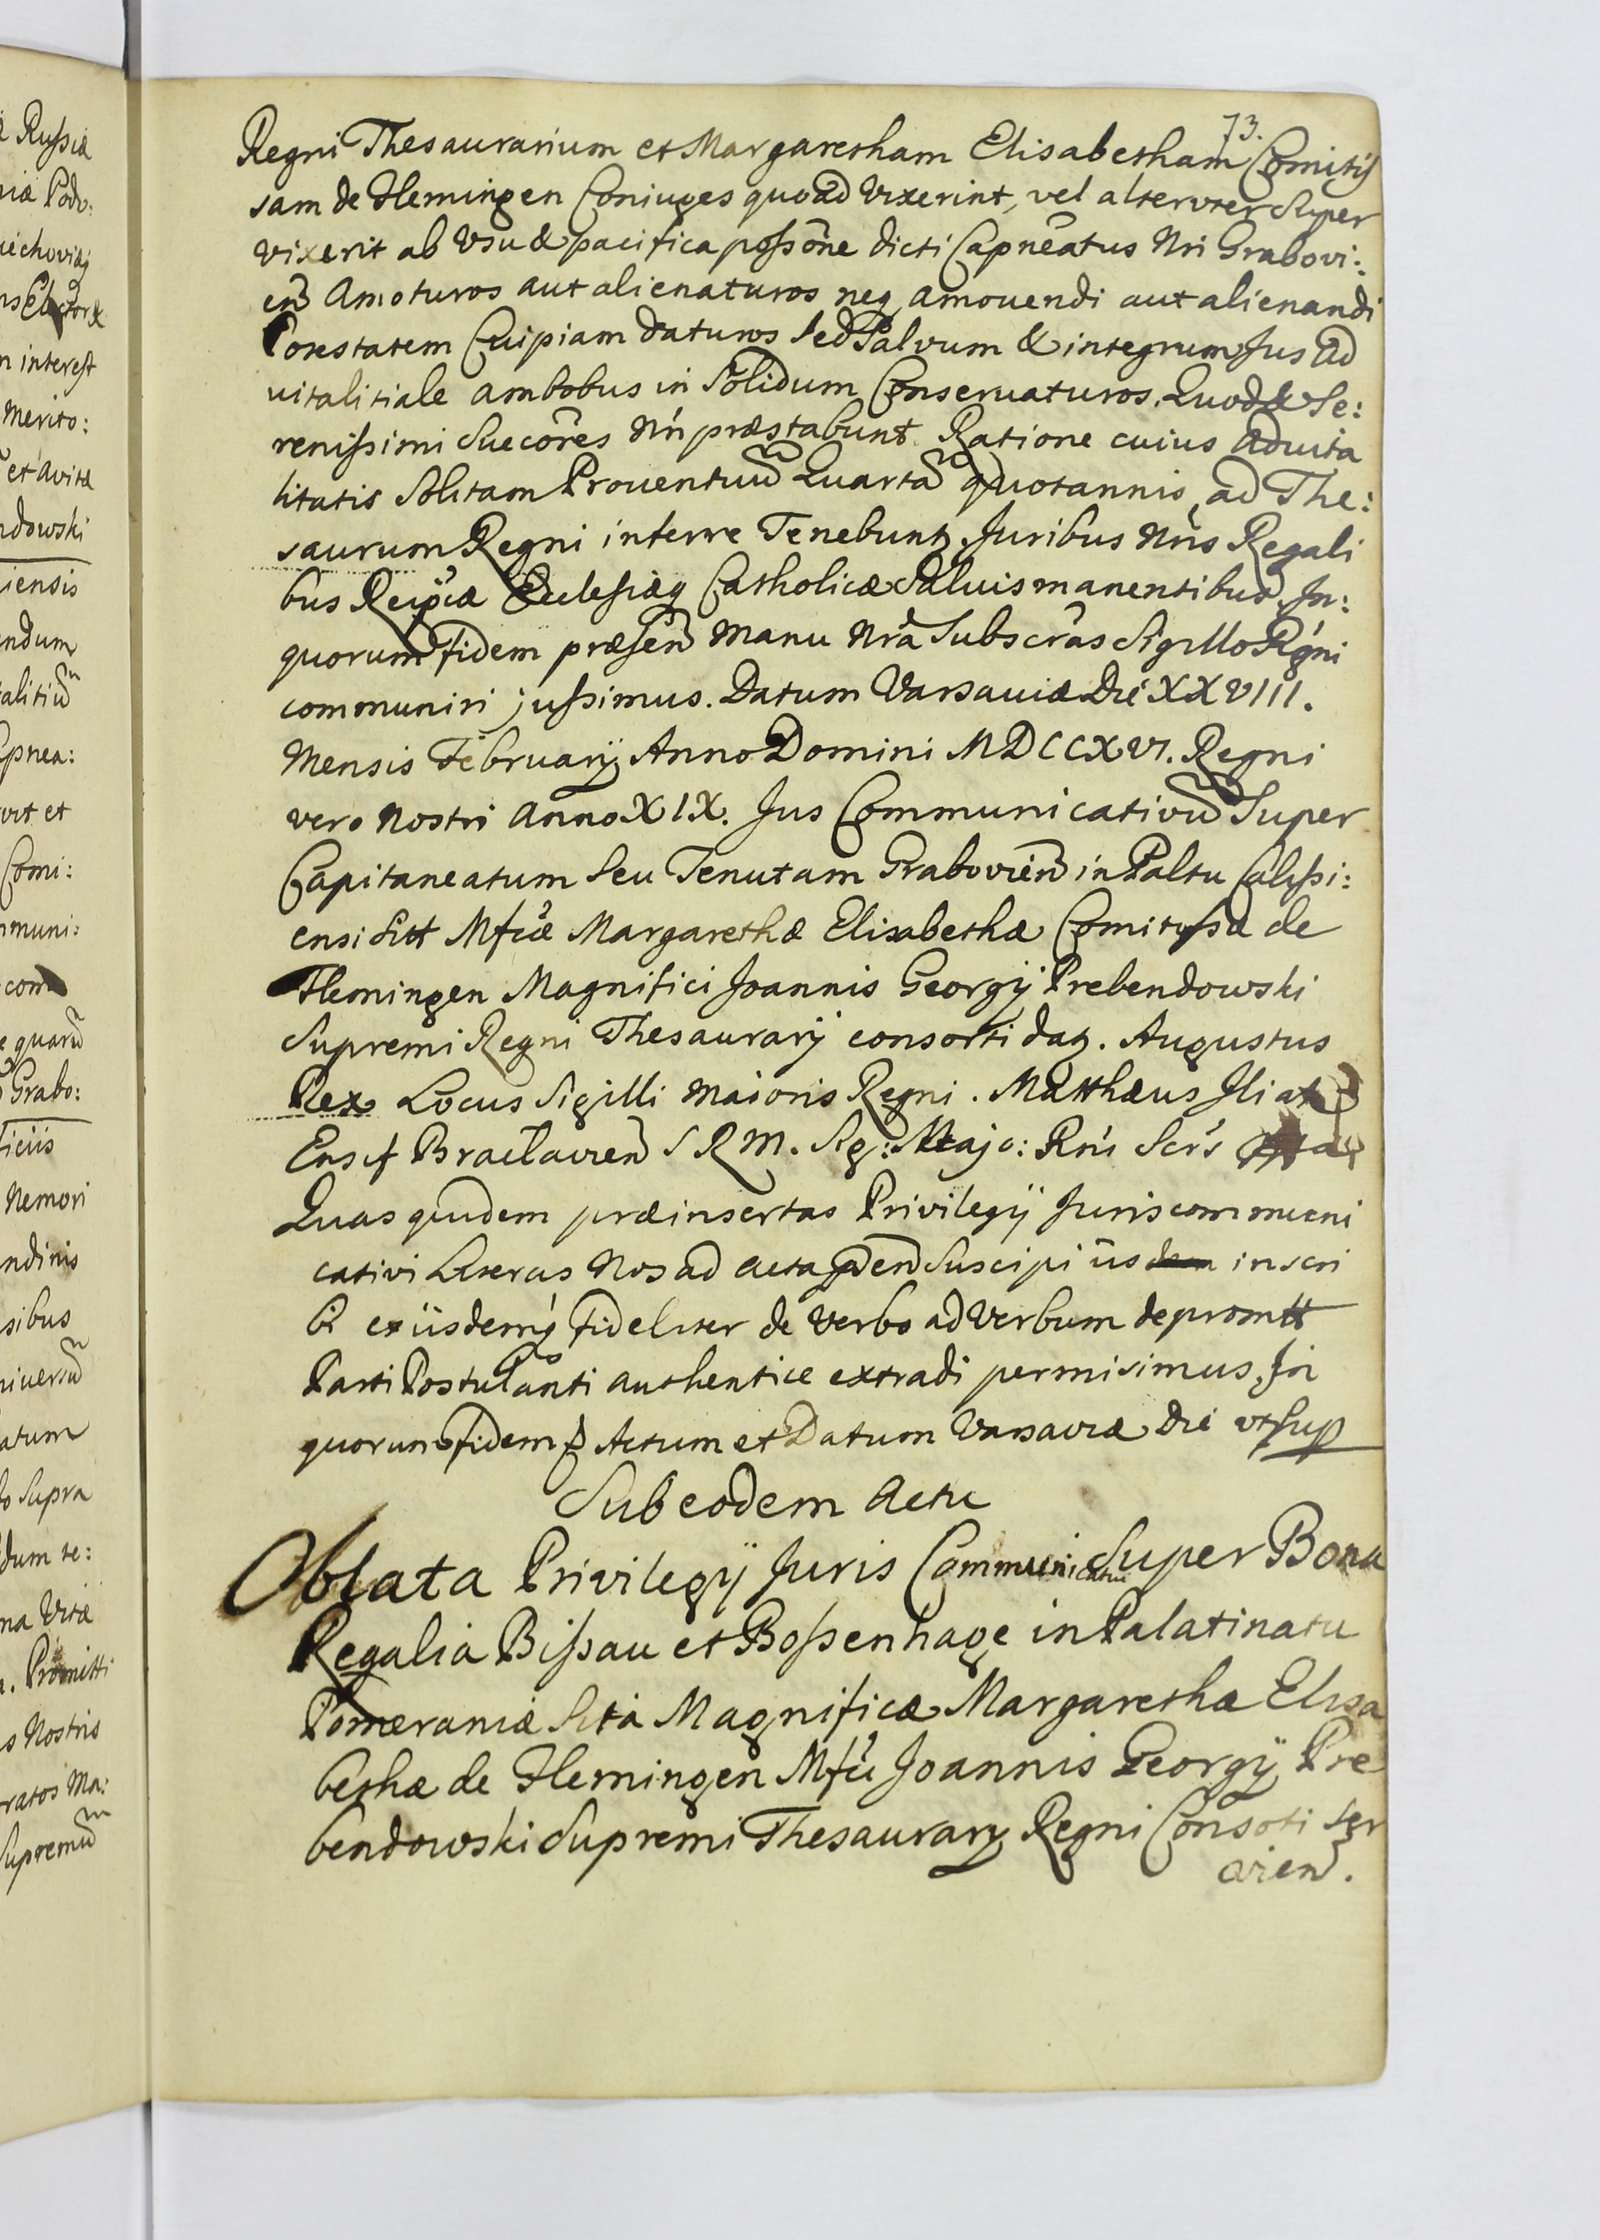 73.
Regni Thesaurarium et Margaretham Elisabetham Comitis
sam de Flemingen Coniuges quoad Vixerint, vel alteruter Super
vixerit ab Vsu & pacifica possōne dicti Capnēatus Nri Grabovi:
eñ Amoturos aut alienaturos neq amouendi aut alienandi
Potestatem Cuipiam daturos sed Salvum & integrum Jus ad
uitalitiale ambobus in Solidum Conseruaturos. Quod & Se:
renissimi Succōres Nri præstabunt. Ratione cuius aduita
litatis Solitam Prouentuū Quartā quotannis ad The:
saurum Regni inferre Tenebunt, Juribus Nris Regali
bus Reipcæ Ecclesiæq Catholicæ Saluis manentibus. In:
quorum fidem præseñ Manu Nrã Subscrãs Sigillo Rgni
communiri jussimus. Datum Varsauiæ Die XXVIII.
Mensis February Anno Domini MDCCXVI. Regni
vero Nostri Anno XIX. Jus Communicativū Super
Capitaneatum Seu Tenutam Grabovień in Paltu Calissi:
ensi sitt Mfcæ Margarethæ Elisabethæ Comitissæ de
Flemingen Magnifici Joannis Georgij Prebendowski
Supremi Regni Thesaurarij consorti dat. Augustus
Rex Locus Sigilli Maioris Regni. Matthæus Iliat
Ensif Braclavień S R M. Sig: Majo: Rni Scr's
Quas quidem præinsertas Privilegij Juris communi
cativi Literas Nos ad acta pñ Suscipi iis inscri
bi ex iisdemq fideliter de Verbo ad Verbum depromtt
Parti Postulanti authentice extradi permisimus. In
quorum fidem Actum et Datum Varsaviæ Die vt Sup
Sub eodem Actu
Oblata Privilegij Juris Communicativi Super Bona
Regalia Bissau et Bossenhage in Palatinatu
Pomeraniæ Sita Magnificæ Margarethæ Elisa
bethæ de Flemingen Mfci Joannis Georgij Pre
bendowski Supremi Thesaurary Regni Consoti ser
vień.